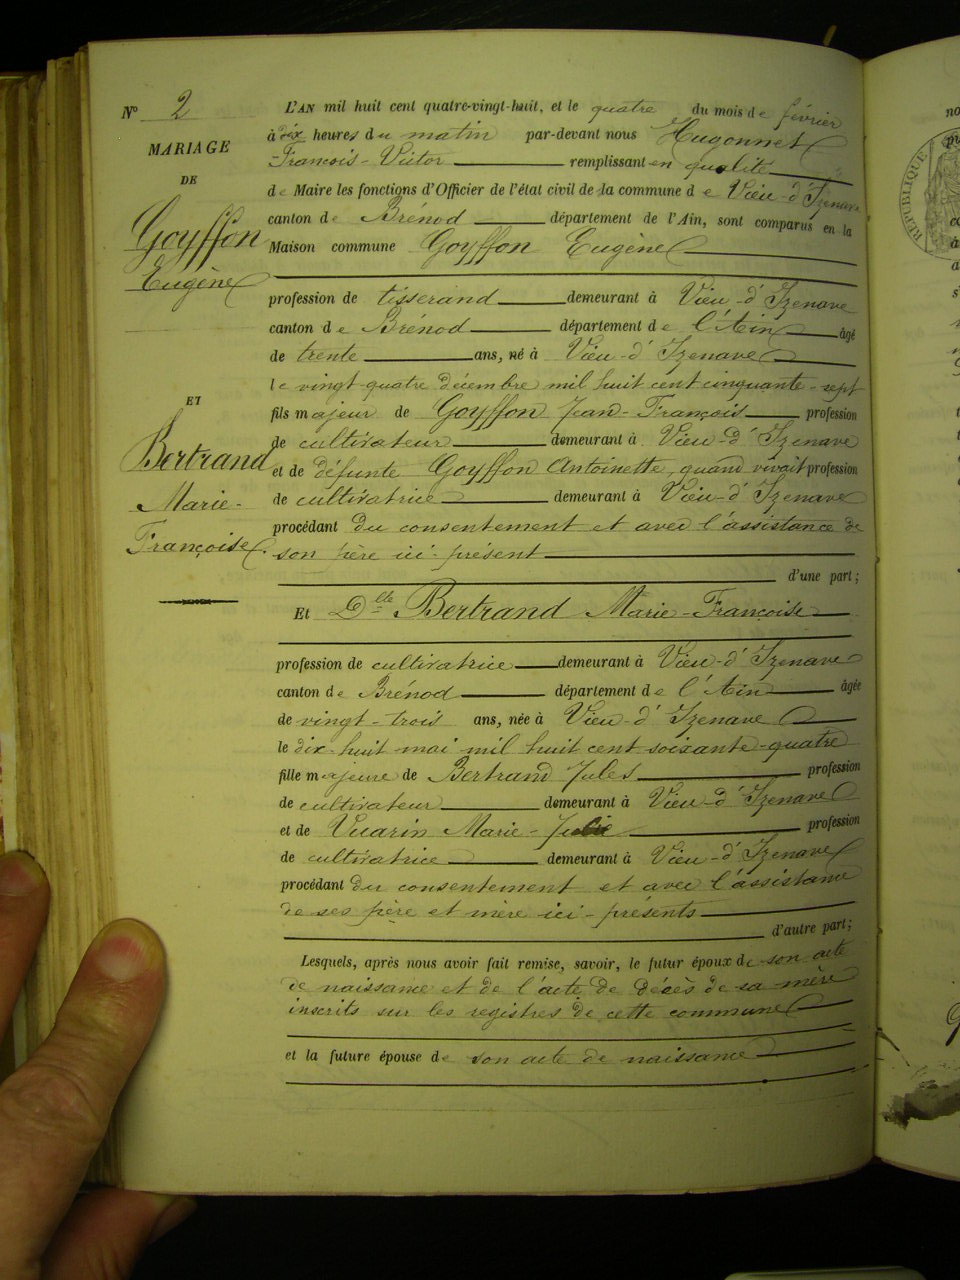 N° 2
MARIAGE
DE
Goyffon
Eugène
ET
Bertrand
Marie-
Françoise.
L'AN mil huit cent quatre-vingt-huit, et le quatre du mois de février
à dix heures du matin par-devant nous Hugonnet
François-Victor remplissant en qualité
de Maire les fonctions d'Officier de l'état civil de la commune de Vieu-d'Izenave
canton de Brénod département de l'Ain, sont comparus en la
Maison commune Goyffon Eugène
profession de tisserand demeurant à Vieu-d'Izenave
canton de Brénod département de l'Ain âgé
de trente ans, né à Vieu-d'Izenave
le vingt-quatre décembre mil huit cent cinquante-sept
fils majeur de Goyffon Jean-François profession
de cultivateur demeurant à Vieu-d'Izenave
et de défunte Goyffon Antoinette, quand vivait profession
de cultivatrice demeurant à Vieu-d'Izenave
procédant du consentement et avec l'assistance de
son père ici-présent
d'une part;
Et Dlle Bertrand Marie-Françoise
profession de cultivatrice demeurant à Vieu-d'Izenave
canton de Brénod département de l'Ain âgée
de vingt-trois ans, née à Vieu-d'Izenave
le dix-huit mai mil huit cent soixante-quatre
fille majeure de Bertrand Jules profession
de cultivateur demeurant à Vieu-d'Izenave
et de Vuarin Marie-Julie profession
de cultivatrice demeurant à Vieu-d'Izenave
procédant du consentement et avec l'assistance
de ses père et mère ici-présents
d'autre part;
Lesquels, après nous avoir fait remise, savoir, le futur époux de son acte
de naissance et de l'acte de décès de sa mère
inscrits sur les registres de cette commune
et la future épouse de son acte de naissance
RÉPUBLIQUE